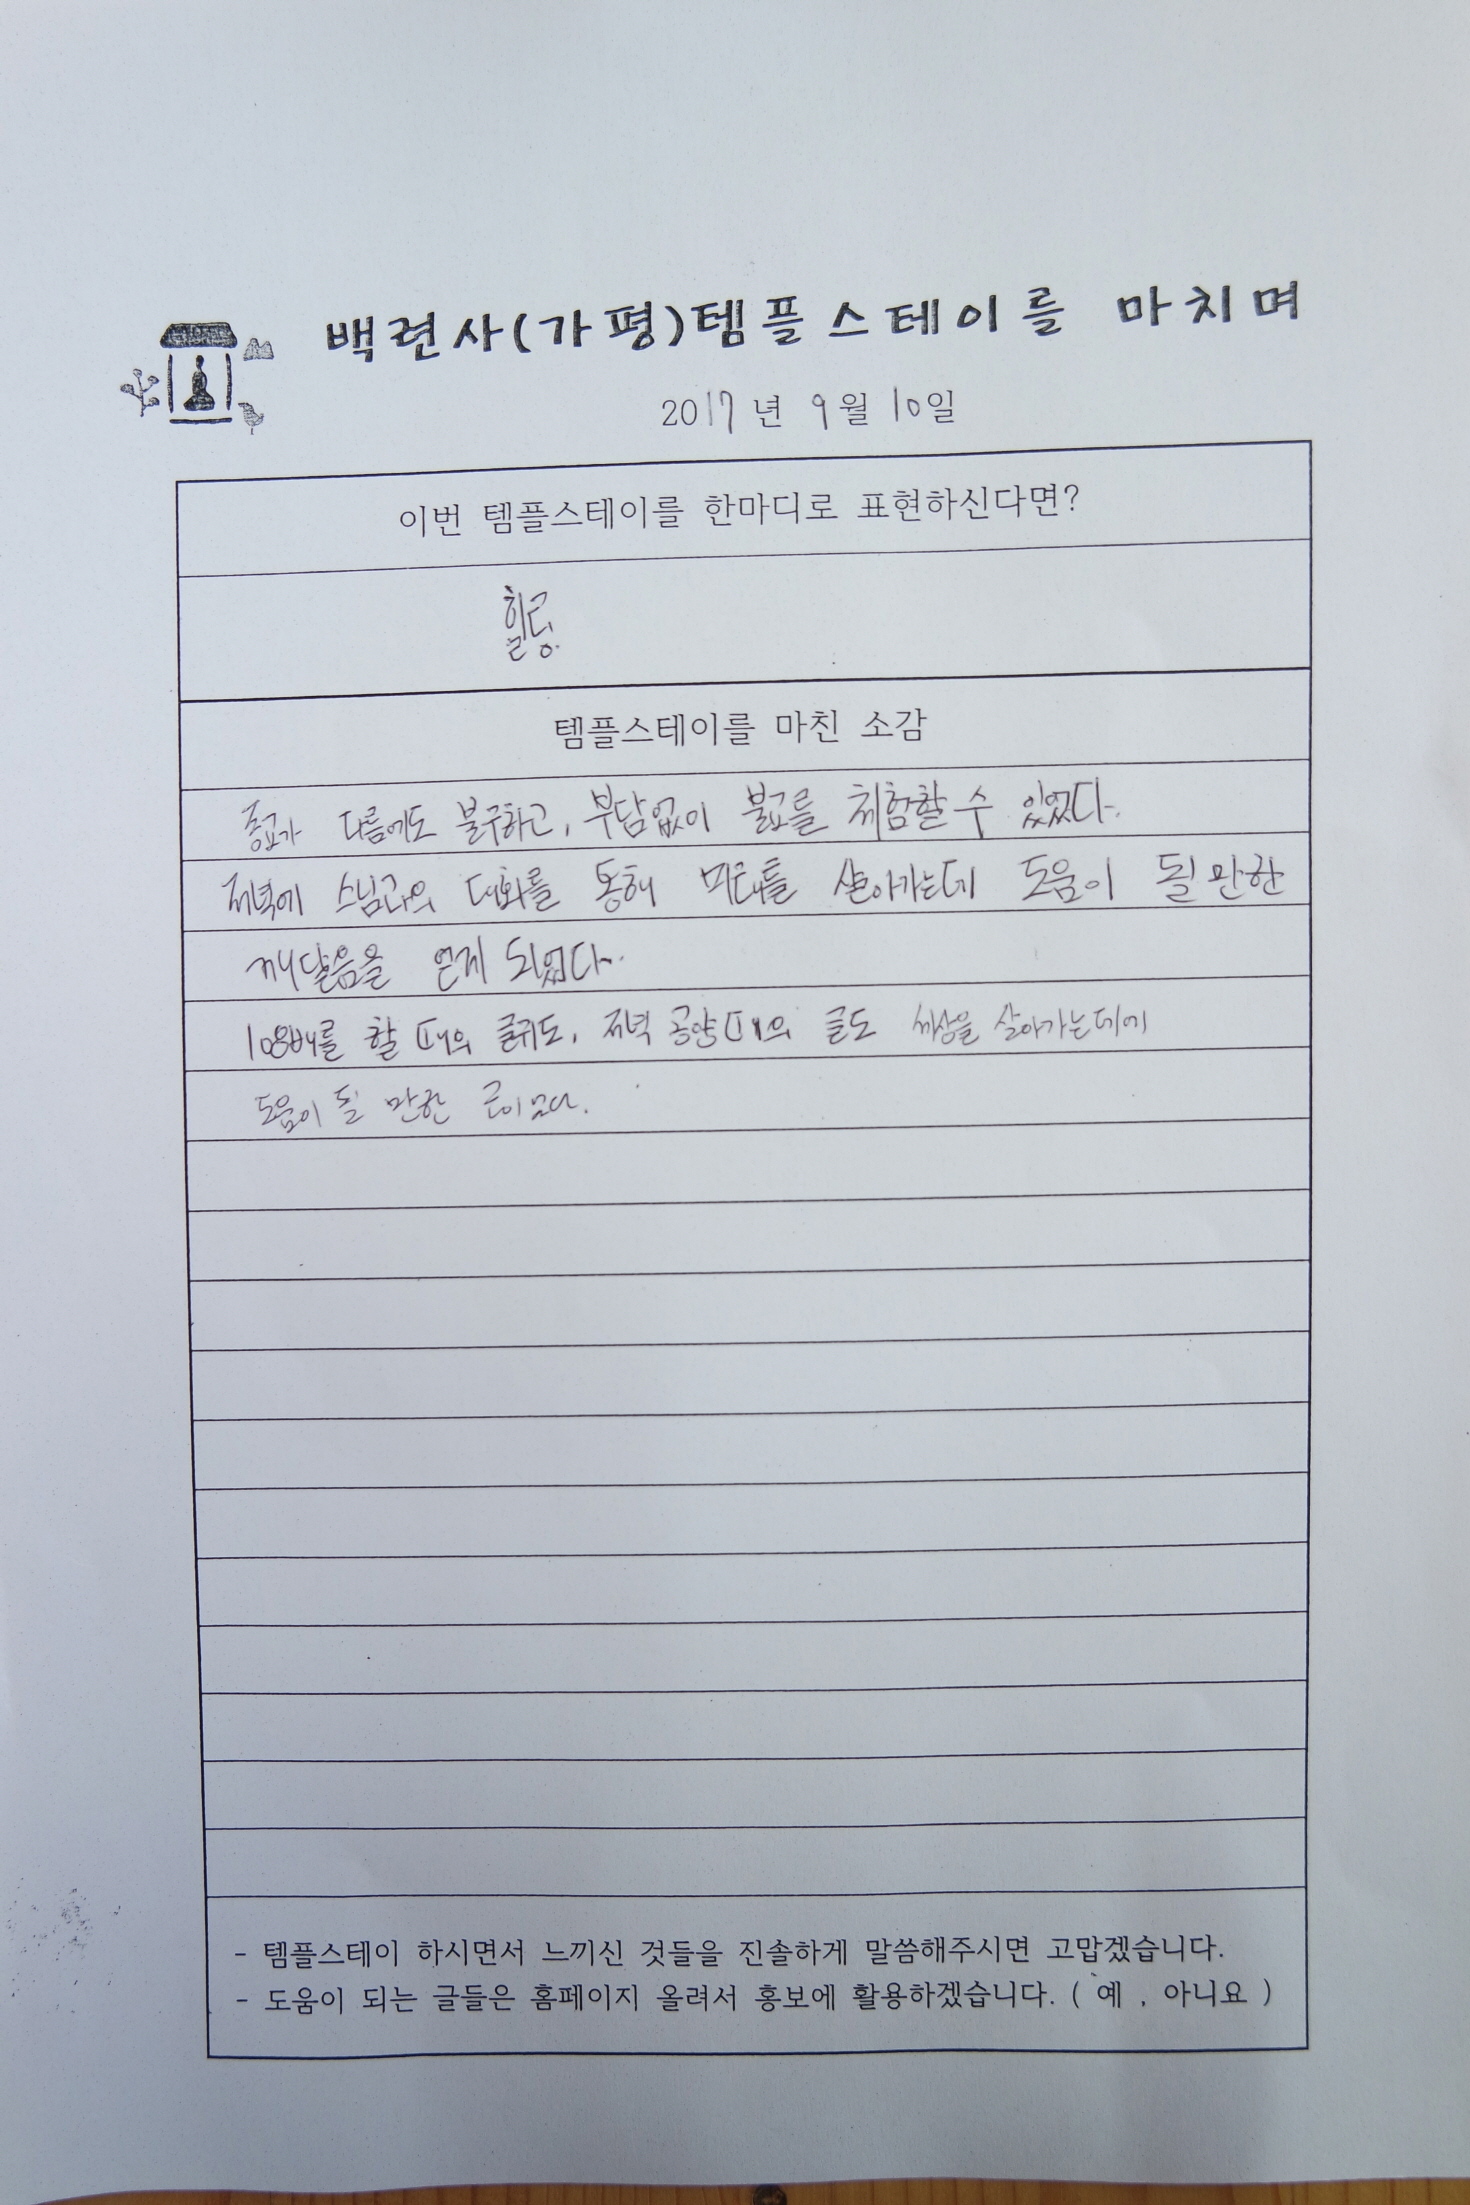 백련사(가평)템플스테이를 마치며
2017년 9월 10일
이번 템플스테이를 한마디로 표현하신다면?
힐링.
템플스테이를 마친 소감
종교가 다름에도 불구하고, 부담없이 불교를 체험할 수 있었다.
저녁에 스님과의 대화를 통해 미래를 살아가는데 도움이 될만한
깨달음을 얻게 되었다.
108배를 할 때의 글귀도, 저녁 공양때의 글도 세상을 살아가는데에
도움이 될 만한
- 템플스테이 하시면서 느끼신 것들을 진솔하게 말씀해주시면 고맙겠습니다.
- 도움이 되는 글들은 홈페이지 올려서 홍보에 활용하겠습니다. ( 예 , 아니요 )